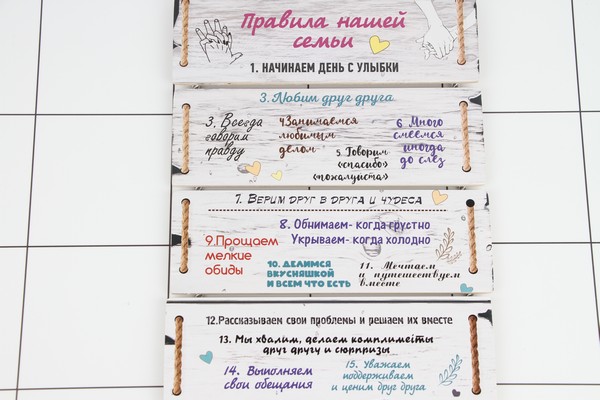 Правила нашей
семьи
1. НАЧИНАЕМ ДЕНЬ С УЛЫБКИ
3. Любим друг друга
3. Всегда
говорим
правду
4Занимаемся
любимым
делом
5. Говорим
<спасибо>
<пожалуйста>
6. Много
смеемся
иногда
до слез
7. Верим друг в друга и чудеса
8. Обнимаем- когда грустно
Укрываем- когда холодно
9.Прощаем
мелкие
обиды
10. ДЕЛИМСЯ
ВКУСНЯШКОЙ
И ВСЕМ ЧТО ЕСТЬ
11. Мечтаем
и путешествуем
вместе
12.Рассказываем свои проблемы и решаем их вместе
13. Мы хвалим, делаем комплименты
друг другу и сюрпризы
14. Выполняем
свои обещания
15. Уважаем
поддерживаем
и ценим друг друга